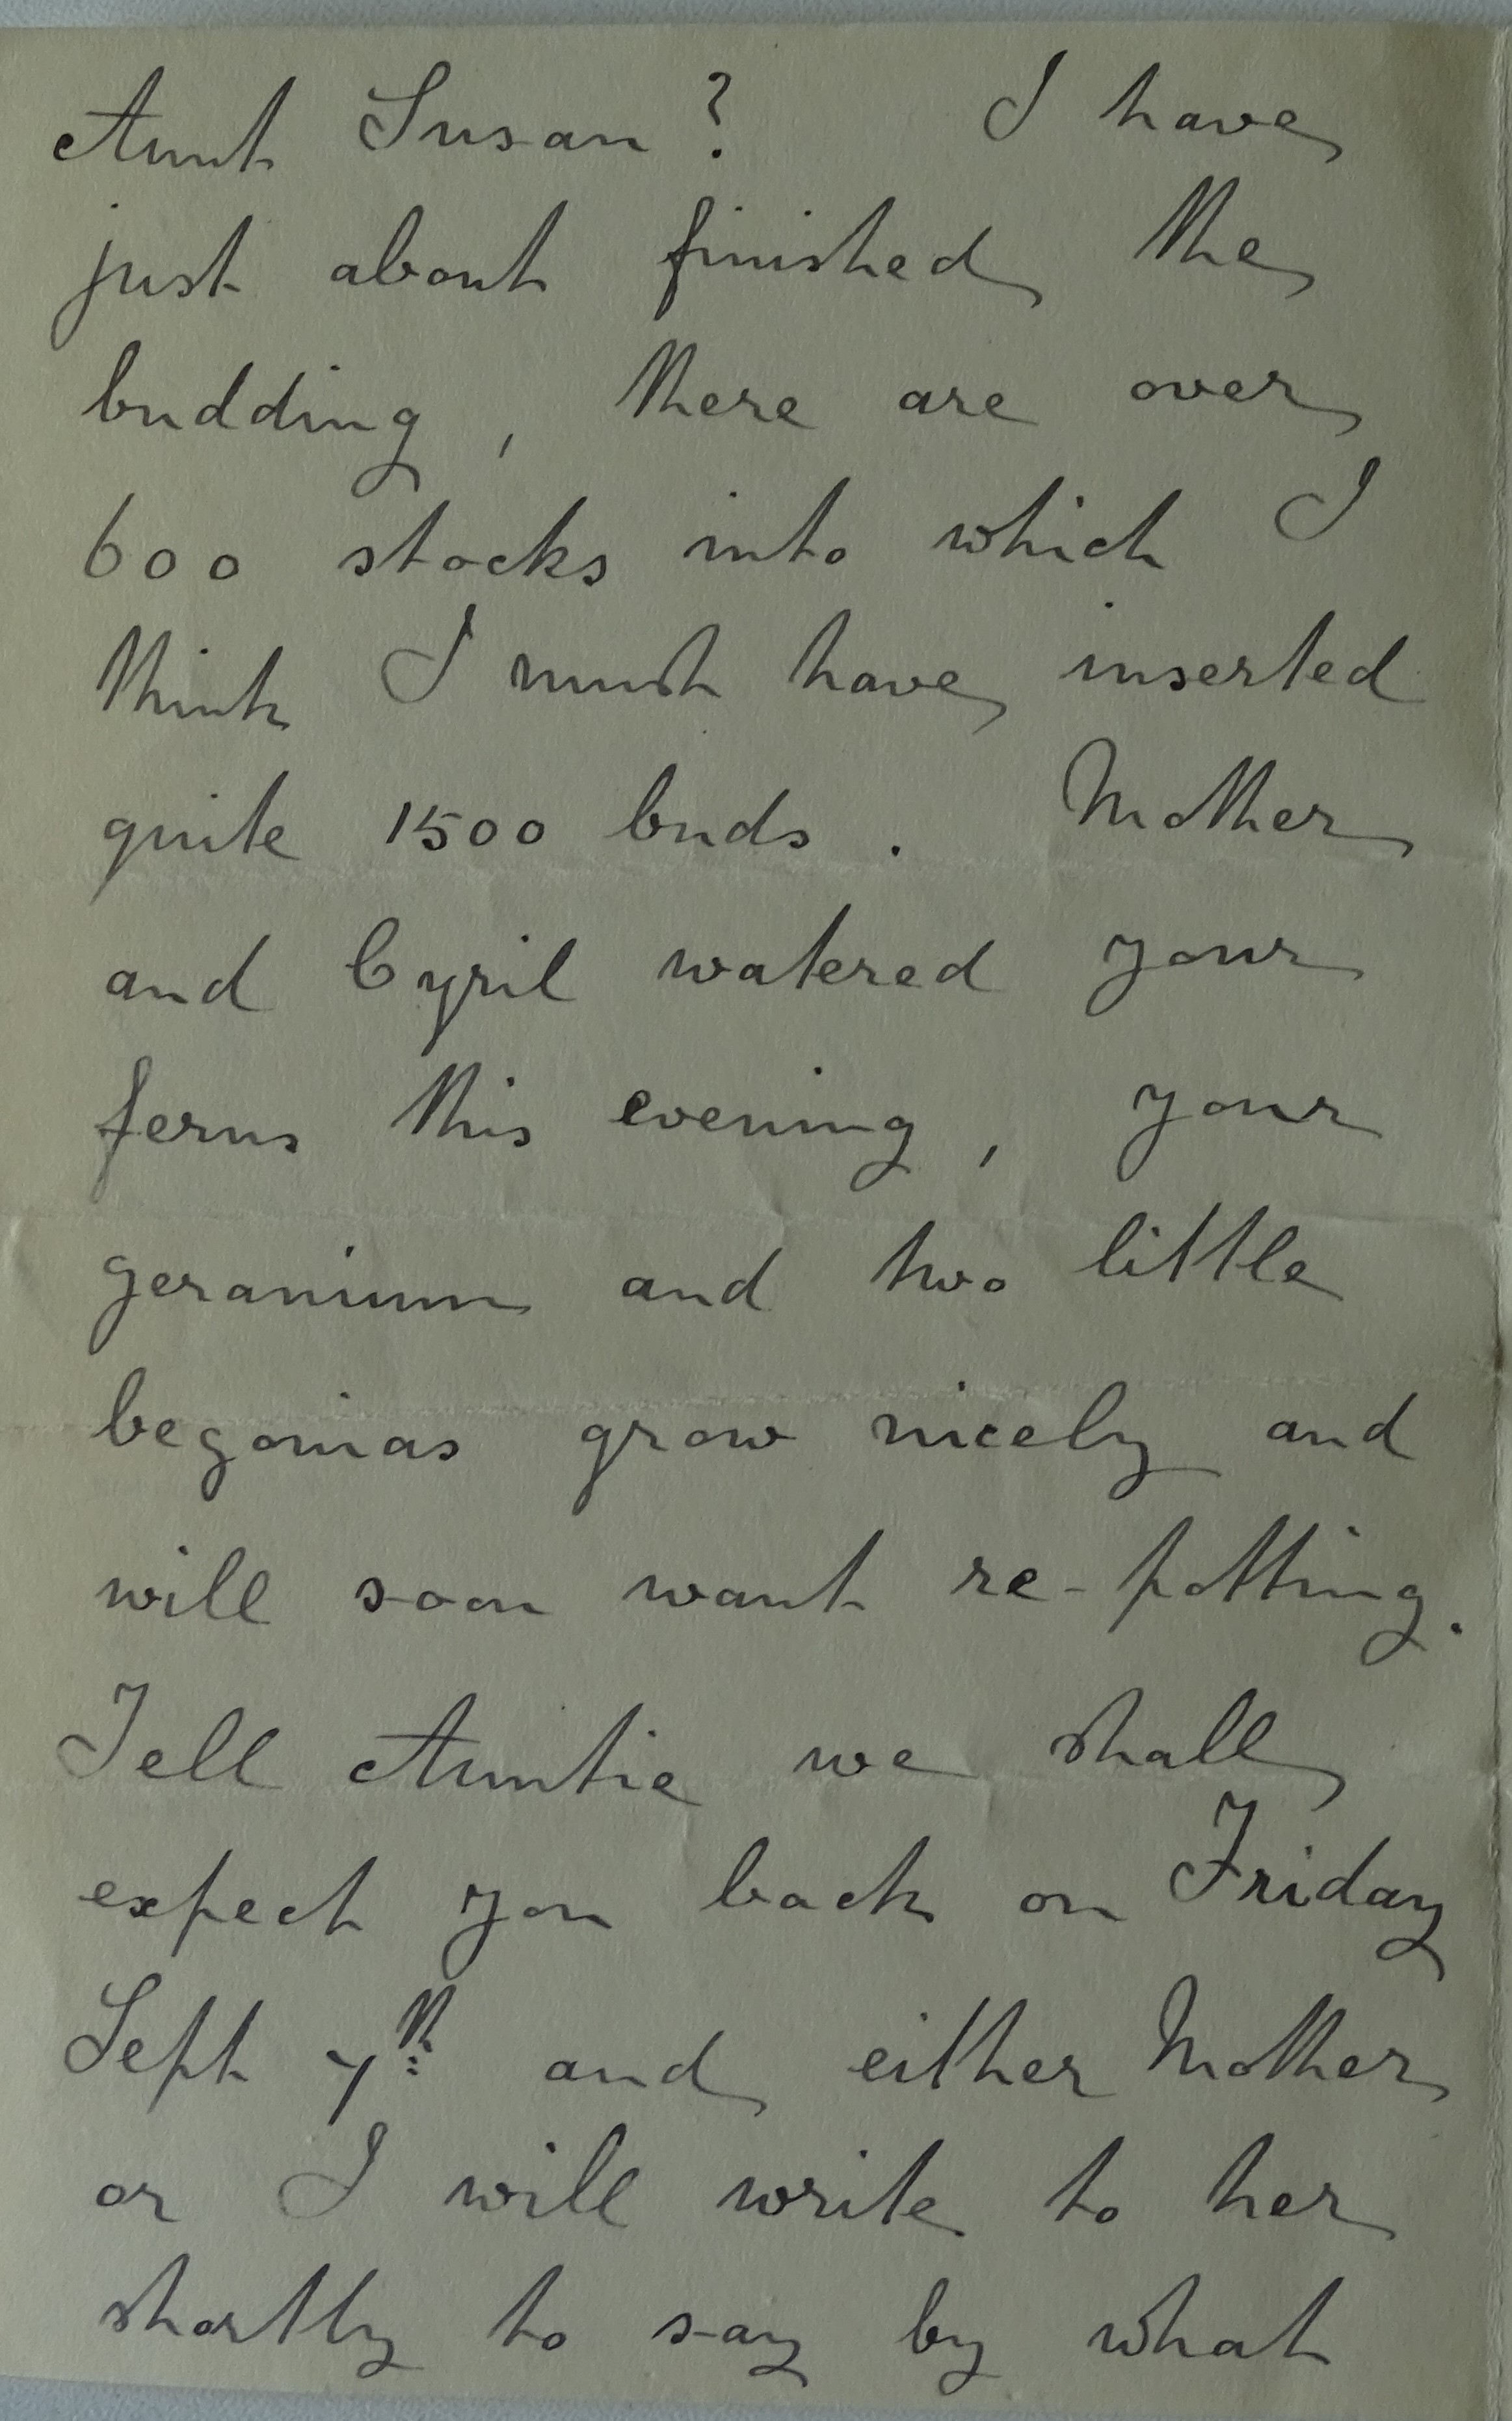 Aunt Susan? I have
just about finished the
budding, there are over
600 stocks into which I
think I must have inserted
quite 1500 buds. Mother
and Cyril watered your
ferns this evening, your
geranium and two little
begonias grow nicely and
will soon want re-potting.
Tell Auntie we shall
expect you back on Friday
Sept 7th and either Mother
or I will write to her
shortly to say by what